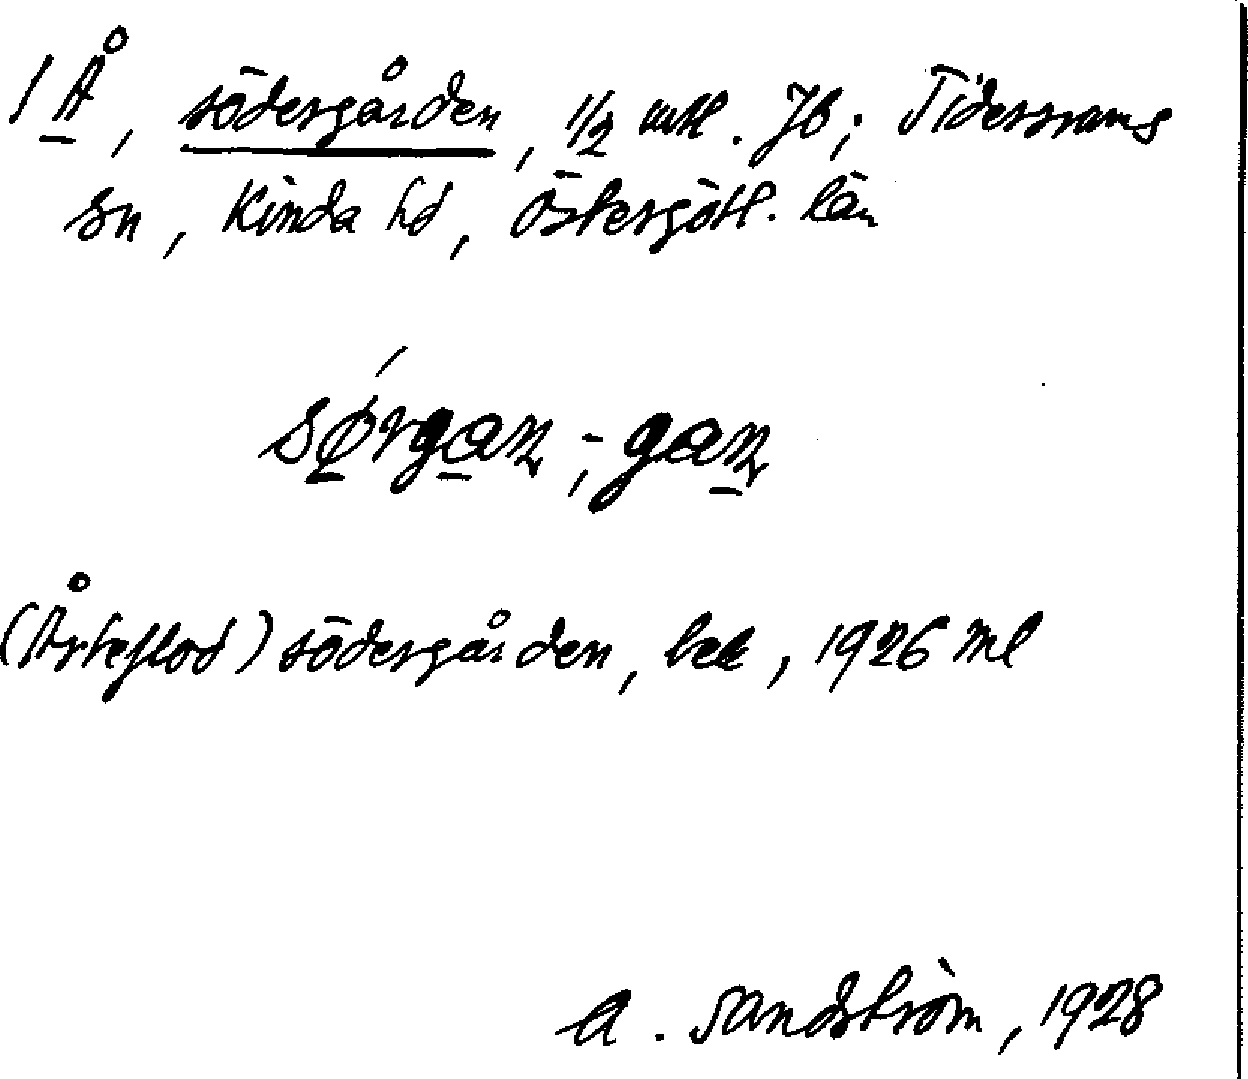 / Å, södergården, 1/2 mtl. Jb; Tidersrums
sn, Kinda hd, Östergötl. län
sørgan, -gan
(Årteflod) södergården, bet, 1926 ml
A. Sandström, 1928